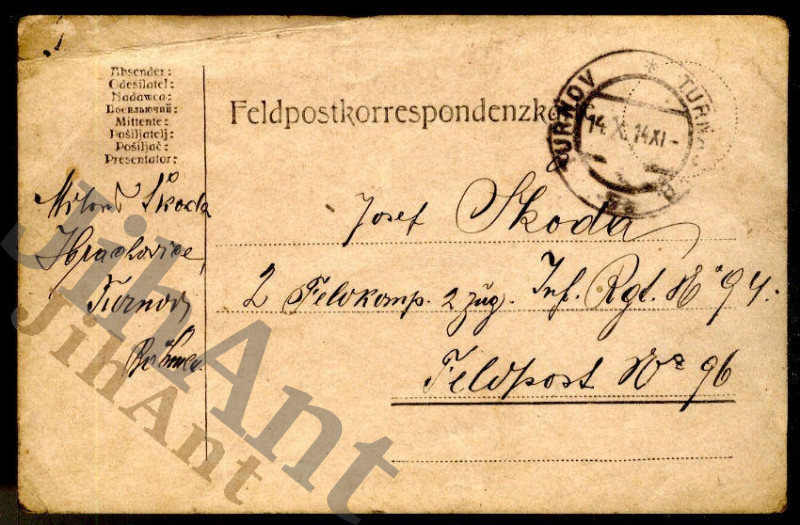 Absender:
Odesílatel:
Nadawca:
Mittente:
Pošiljatelj:
Pošiljač:
Presentator:
Feldpostkorrespondenzka
TURNOV * TURNOV
14 XI 14 XI -
Škoda
Hrachovice,
Turnov
Böhmen
Josef Skoda
2 Feldkomp. 2 Zug. Inf. Rgt. No 94.
Feldpost No 96
JihAnt
JihAnt